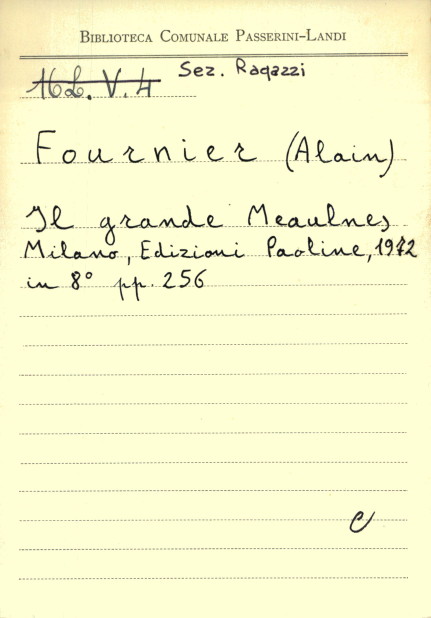 BIBLIOTECA COMUNALE PASSERINI-LANDI
16L. V. 4 Sez. Ragazzi
Fournier (Alain)
Il grande Meaulnes
Milano, Edizioni Paoline, 1972
in 8° pp. 256
C